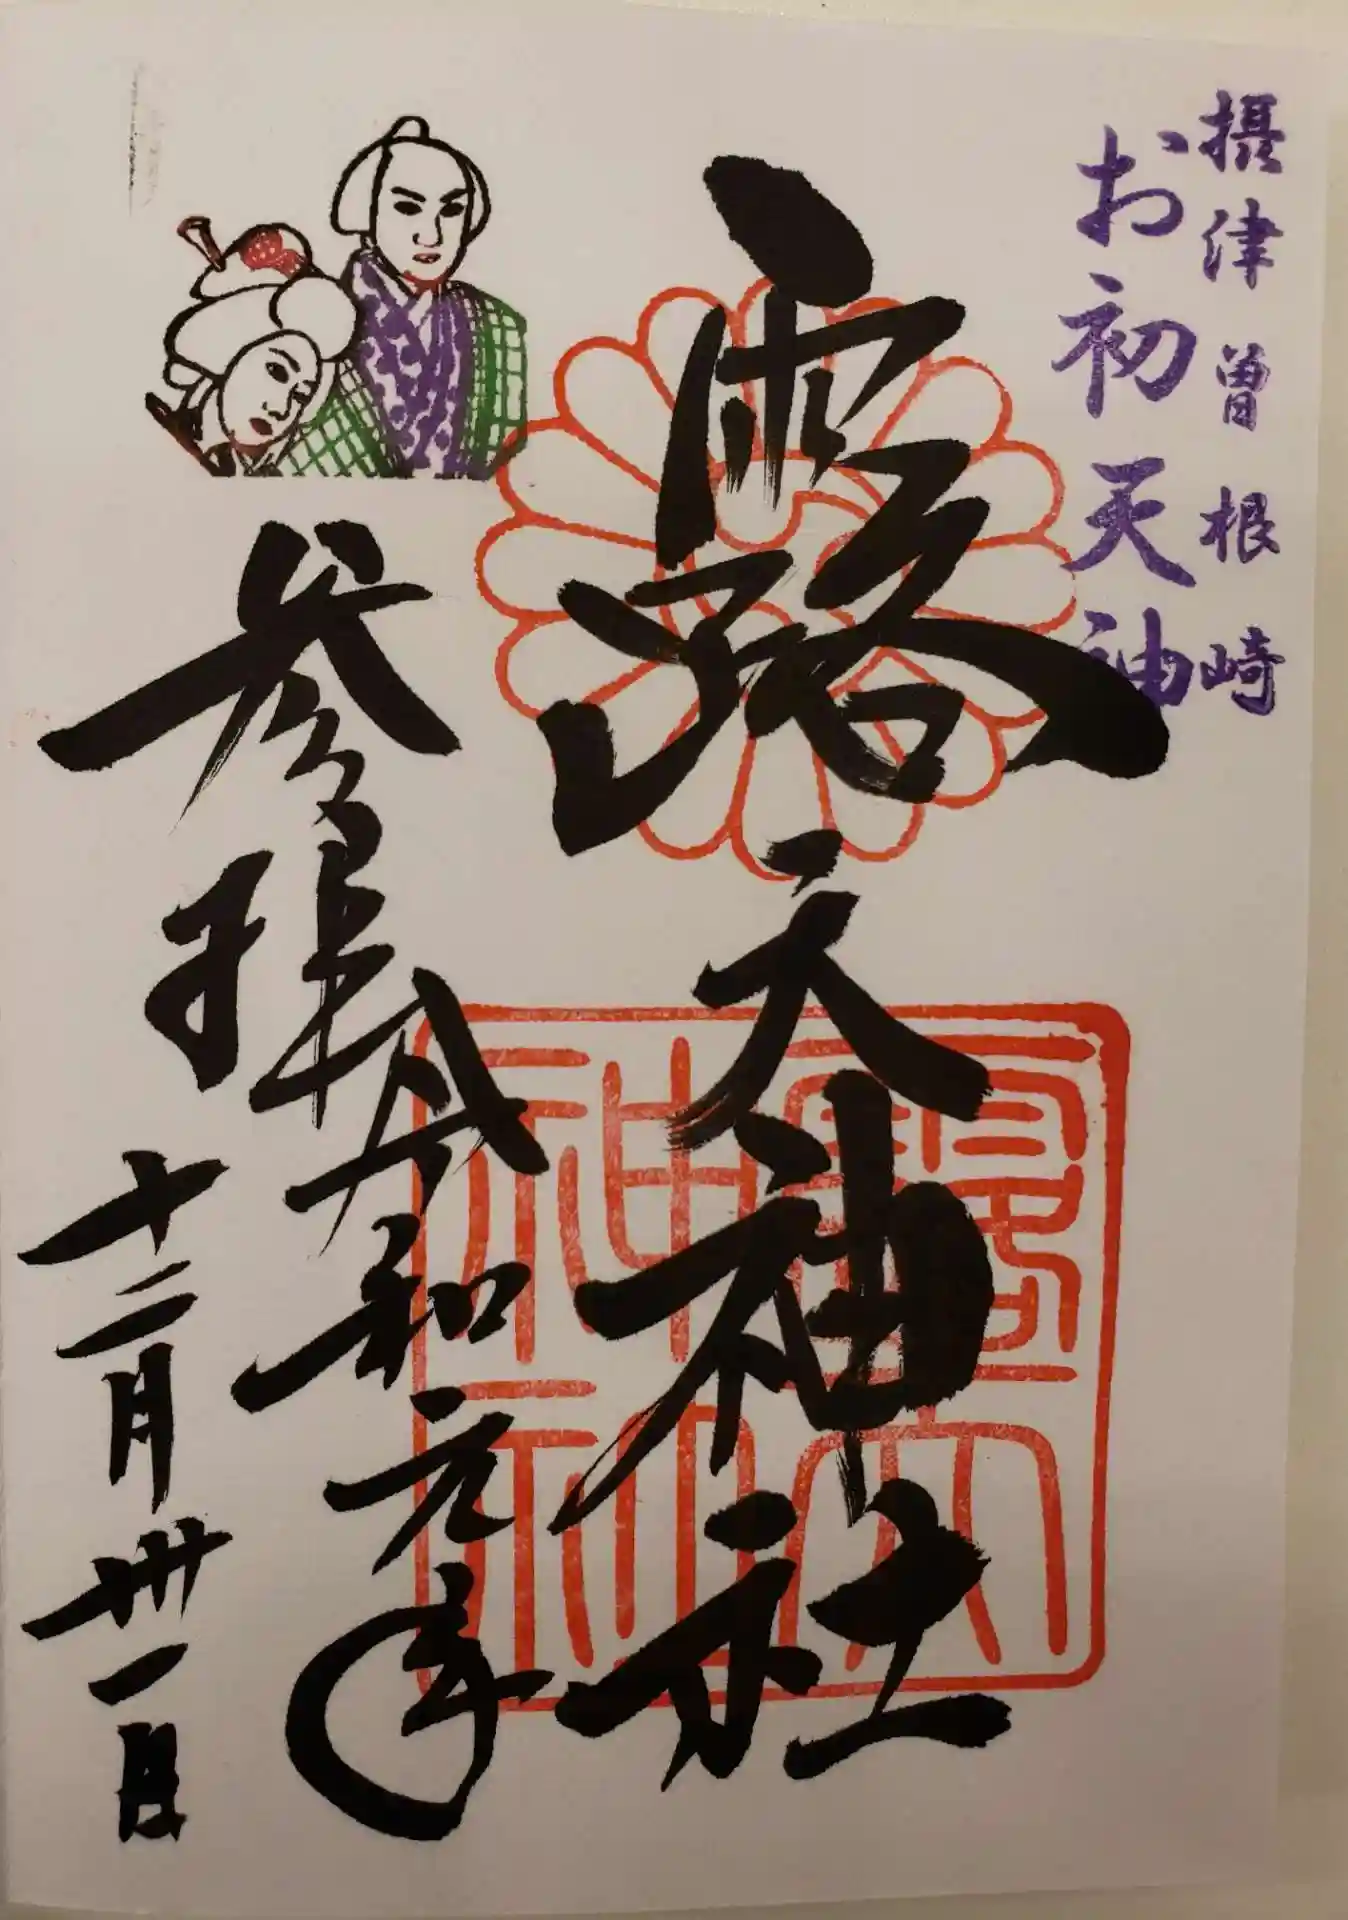 摂津曽根崎
お初天神
露天神社
参拝
令和元年
十二月卅一日
露天神社